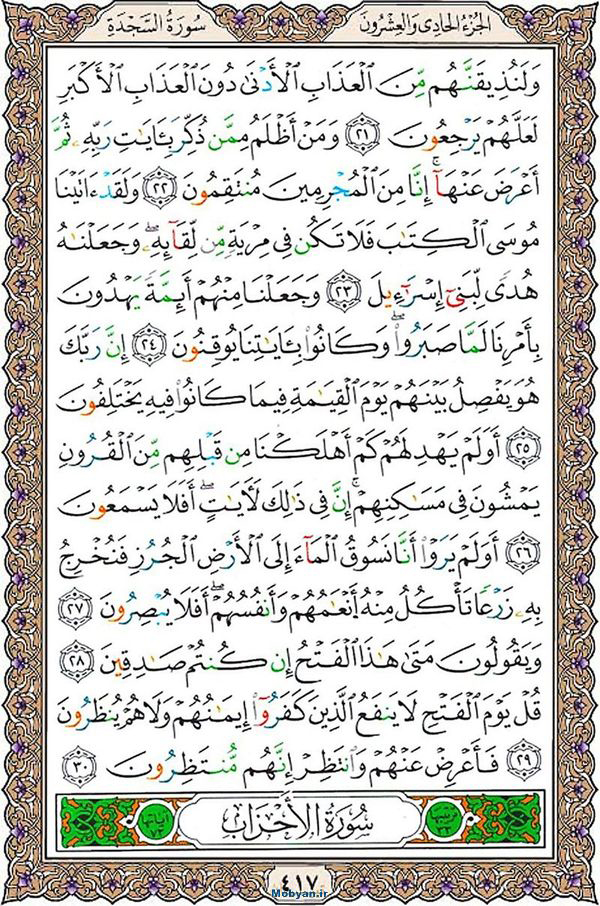 الجزء الحادى والعشرون سورة السجدة
وَلَنُذِيقَنَّهُم مِّنَ ٱلْعَذَابِ ٱلْأَدْنَىٰ دُونَ ٱلْعَذَابِ ٱلْأَكْبَرِ
لَعَلَّهُمْ يَرْجِعُونَ ٢١ وَمَنْ أَظْلَمُ مِمَّن ذُكِّرَ بِـَٔايَـٰتِ رَبِّهِۦ ثُمَّ
أَعْرَضَ عَنْهَآ ۚ إِنَّا مِنَ ٱلْمُجْرِمِينَ مُنتَقِمُونَ ٢٢ وَلَقَدْ ءَاتَيْنَا
مُوسَى ٱلْكِتَـٰبَ فَلَا تَكُن فِى مِرْيَةٍ مِّن لِّقَآئِهِۦ ۖ وَجَعَلْنَـٰهُ
هُدًى لِّبَنِىٓ إِسْرَٰٓءِيلَ ٢٣ وَجَعَلْنَا مِنْهُمْ أَئِمَّةً يَهْدُونَ
بِأَمْرِنَا لَمَّا صَبَرُوا۟ ۖ وَكَانُوا۟ بِـَٔايَـٰتِنَا يُوقِنُونَ ٢٤ إِنَّ رَبَّكَ
هُوَ يَفْصِلُ بَيْنَهُمْ يَوْمَ ٱلْقِيَـٰمَةِ فِيمَا كَانُوا۟ فِيهِ يَخْتَلِفُونَ
٢٥ أَوَلَمْ يَهْدِ لَهُمْ كَمْ أَهْلَكْنَا مِن قَبْلِهِم مِّنَ ٱلْقُرُونِ
يَمْشُونَ فِى مَسَـٰكِنِهِمْ ۚ إِنَّ فِى ذَٰلِكَ لَـَٔايَـٰتٍ ۖ أَفَلَا يَسْمَعُونَ
٢٦ أَوَلَمْ يَرَوْا۟ أَنَّا نَسُوقُ ٱلْمَآءَ إِلَى ٱلْأَرْضِ ٱلْجُرُزِ فَنُخْرِجُ
بِهِۦ زَرْعًا تَأْكُلُ مِنْهُ أَنْعَـٰمُهُمْ وَأَنفُسُهُمْ ۖ أَفَلَا يُبْصِرُونَ ٢٧
وَيَقُولُونَ مَتَىٰ هَـٰذَا ٱلْفَتْحُ إِن كُنتُمْ صَـٰدِقِينَ ٢٨
قُلْ يَوْمَ ٱلْفَتْحِ لَا يَنفَعُ ٱلَّذِينَ كَفَرُوٓا۟ إِيمَـٰنُهُمْ وَلَا هُمْ يُنظَرُونَ
٢٩ فَأَعْرِضْ عَنْهُمْ وَٱنتَظِرْ إِنَّهُم مُّنتَظِرُونَ ٣٠
ترتيبها ٣٣ سورة الأحزاب آياتها ٧٣
٤١٧
Mobyan.ir